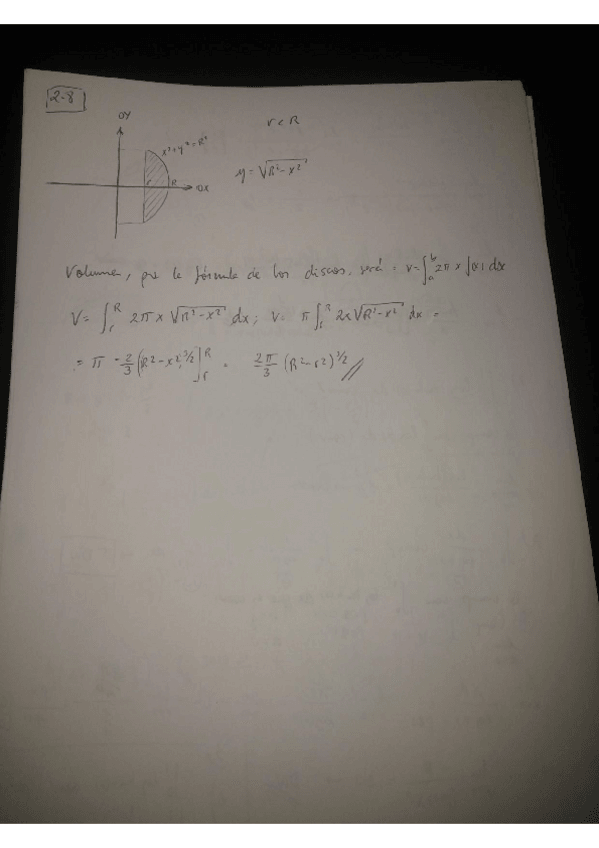 2.8
OY
r < R
x² + y² = R²
y = √(R² - x²)
r R OX
Volumen, por la fórmula de los discos, será: V = ∫ₐᵇ 2π x f(x) dx
V = ∫ᵣᴿ 2π x √(R² - x²) dx; V = π ∫ᵣᴿ 2x √(R² - x²) dx =
= π · -2/3 (R² - x²)^3/2 ]ᵣᴿ = 2π/3 (R² - r²)^3/2 //